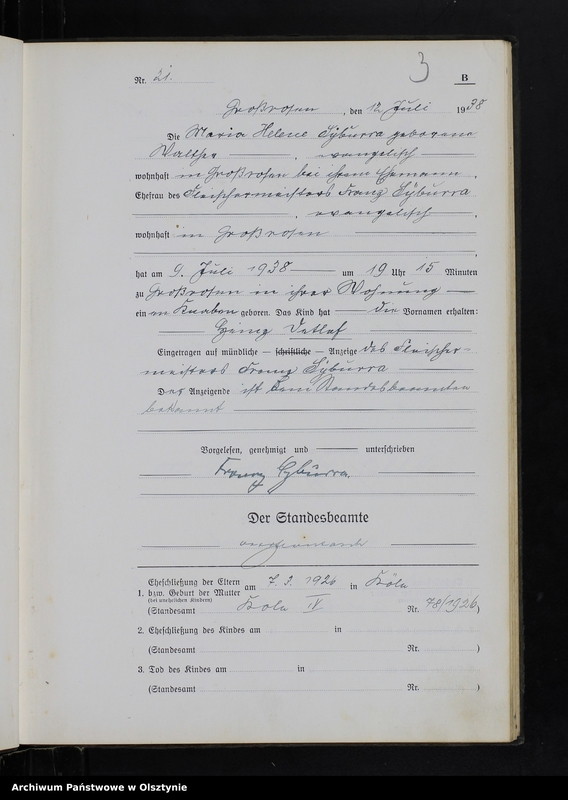 3
Nr. 21.
B
Großrosen, den 12. Juli 1938
Die Maria Helene Syburra geborene
Walther, evangelisch
wohnhaft in Großrosen bei ihrem Ehemann,
Ehefrau des Fleischermeisters Franz Syburra
, evangelisch,
wohnhaft in Großrosen
hat am 9. Juli 1938 um 19 Uhr 15 Minuten
zu Großrosen in ihrer Wohnung
einen Knaben geboren. Das Kind hat die Vornamen erhalten:
Heinz Detlef
Eingetragen auf mündliche — schriftliche — Anzeige des Fleischer-
meisters Franz Syburra
Der Anzeigende ist dem Standesbeamten
bekannt
Vorgelesen, genehmigt und unterschrieben
Franz Syburra.
Der Standesbeamte
1. Eheschließung der Eltern
bzw. Geburt der Mutter am 7. 3. 1926 in Köln
(bei unehelichen Kindern)
(Standesamt Köln IV Nr. 78/1926)
2. Eheschließung des Kindes am in
(Standesamt Nr. )
3. Tod des Kindes am in
(Standesamt Nr. )
Archiwum Państwowe w Olsztynie